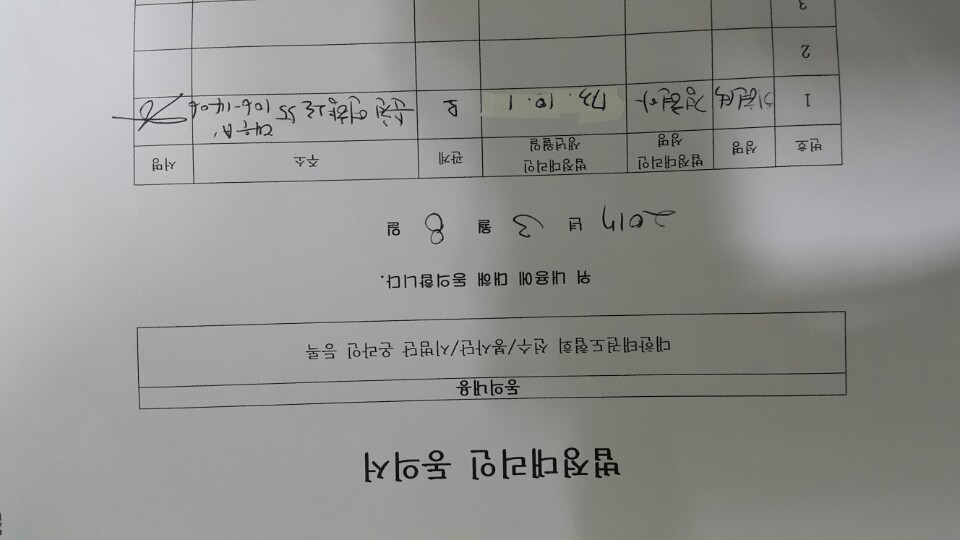 법정대리인 동의서
동의내용
대한태권도협회 선수/봉사단/시범단 온라인 등록
위 내용에 대해 동의합니다.
2017 년 3 월 8 일
번호 성명 법정대리인 성명 법정대리인 생년월일 관계 주소 서명
1 73. 10. 1 모 순천 55 106-1406
2
3